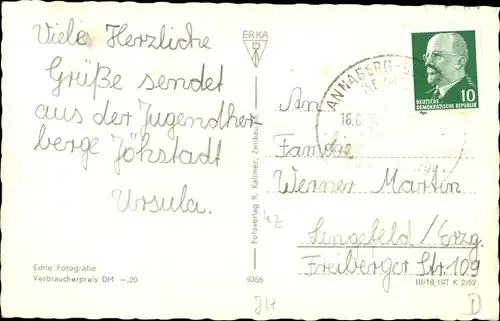 Viele Herzliche
Grüße sendet
aus der Jugendher-
berge Jöhstadt
Ursula.
Echte Fotografie
Verbraucherpreis DM –.20
ERKA
Fotoverlag R. Kallmer, Zwickau
9355
ANNABERG-
DEUTSCHE
DEMOKRATISCHE REPUBLIK
10
An
Familie
Werner Martin
Lengefeld/Erzg.
Freiberger Str. 109
III/18/197 K 2/62
D